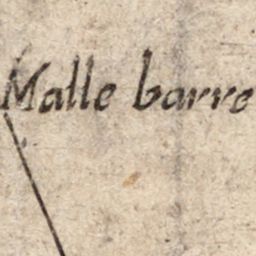 Malle barre